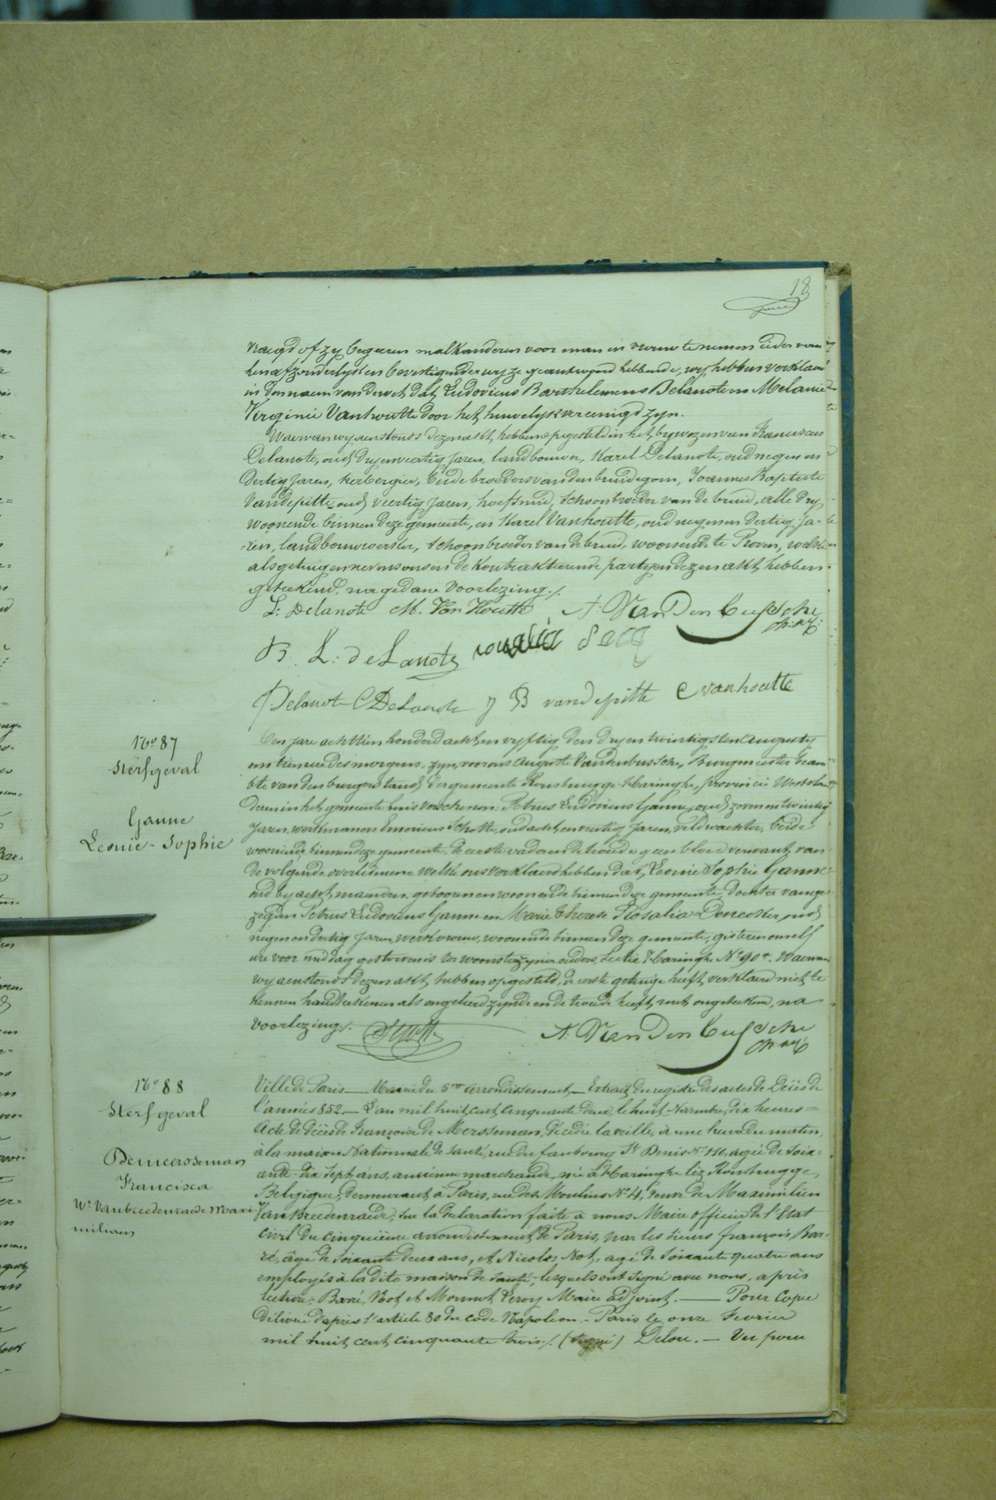 18
vraegd of zy begeeren malkanderen voor man en vrouw te nemen elder van
hen afzonderlyk en bevestigender wyze geantwoord hebbende, wy hebben verklaard
in den naem van de wet dat Ludovicus Barthelemeus Delanote en Melanie
Virginie Vanhoutte door het huwelyk vereenigd zyn.
Waervan wy aenstonds dezen akt hebben opgesteld in het bywezen van Franciscus
Delanote, oud dryenveertig jaren, landbouwer, Karel Delanote, oud negen en
dertig jaren, herbergier, beide broeders van den bruidegom, Joannes Baptiste
Vandepitte oud veertig jaren, hoefsmid, schoonbroeder van de bruid, alle dry
woonende binnen deze gemeente, en Karel Vanhoutte, oud negen en dertig ja-
ren, landbouwwerker, schoonbroeder van de bruid, woonende te Proven, welke
als getuigen nevens ons en de kontrakteerende partyen dezen akt hebben
geteekend, na gedane voorlezing.
L: Delanote M. Van Houtte A. VandenBussche
B. L: deLanote
Delanot C DeLanote J B vandepitte C vanhoutte
No 87
Sterfgeval
Ganne
Leonie-Sophie
Den jare achttien honderd acht en vyftig den dry en twintigsten Augusty
om tien ure des morgens, zyn voor ons Auguste Vandenbussche, Burgmeester beam-
bte van den burgerstand der gemeente Rousbrugge-Haringhe, provincie Westvlaen-
deren in het gemeente huis verschenen Petrus Ludovicus Ganne, oud zeven en twintig
jaren, werkman en Emericus Schotte, oud acht en veertig jaren, veldwachter, beide
woonende binnen deze gemeente, de eerste vader en de tweede geen bloedverwant van
de volgende overledenen welke ons verklaerd hebben dat Leonie Sophie Ganne
oud acht maenden, geboren en woonende binnen deze gemeente dochter van ge-
zegden Petrus Ludovicus Ganne en Marie Therese Rosalia Doncester, oud
negen en dertig jaren, werkvrouw, woonende binnen deze gemeente, gisteren om elf
ure voor middag gestorven is ter woonste zyner ouders, sectie Haringhe No 40. Waervan
wy aenstonds dezen akt hebben opgesteld, de eerste getuige heeft verklaerd niet te
kennen handteekenen als ongeleerd zynde en de tweede heeft met ons geteekend, na
voorlezing. Schotte A. VandenBussche
No 88
Sterfgeval
Demeersseman
Francisca
We Vanbreedenraede Maxi
miliaen
Ville de Paris — Mairie du 5me arrondissement — Extrait du registre des actes de Décès de
l'année 1852 — L'an mil huit cent cinquante deux, le huit Novembre, dix heures =
Acte de décès de Françoise de Mersseman, décédée la veille, à une heure du matin,
à la maison Nationale de santé, rue du faubourg St Denis No 110, agée de soix-
ante dix sept ans, ancienne marchande, née à Haringhe lez Rousbrugge,
Belgique, demeurant à Paris, rue des Moulins No 4, veuve de Maximilien
Van Breedenraede, sur la déclaration faite à nous Maire officier de l'état
civil du cinquième arrondissement de Paris, par les sieurs François Bar-
ré, agé de soixante deux ans, et Nicolas Not, agé de soixante quatre ans
employés à la dite maison de santé, lesquels ont signé avec nous, après
lecture. Barré, Not et Leroy Maire adjoint. — Pour copie
délivrée d'après l'article 80 du code Napoléon. Paris le onze Fevrier
mil huit cent cinquante trois. (signé) Delou. — Vu pour